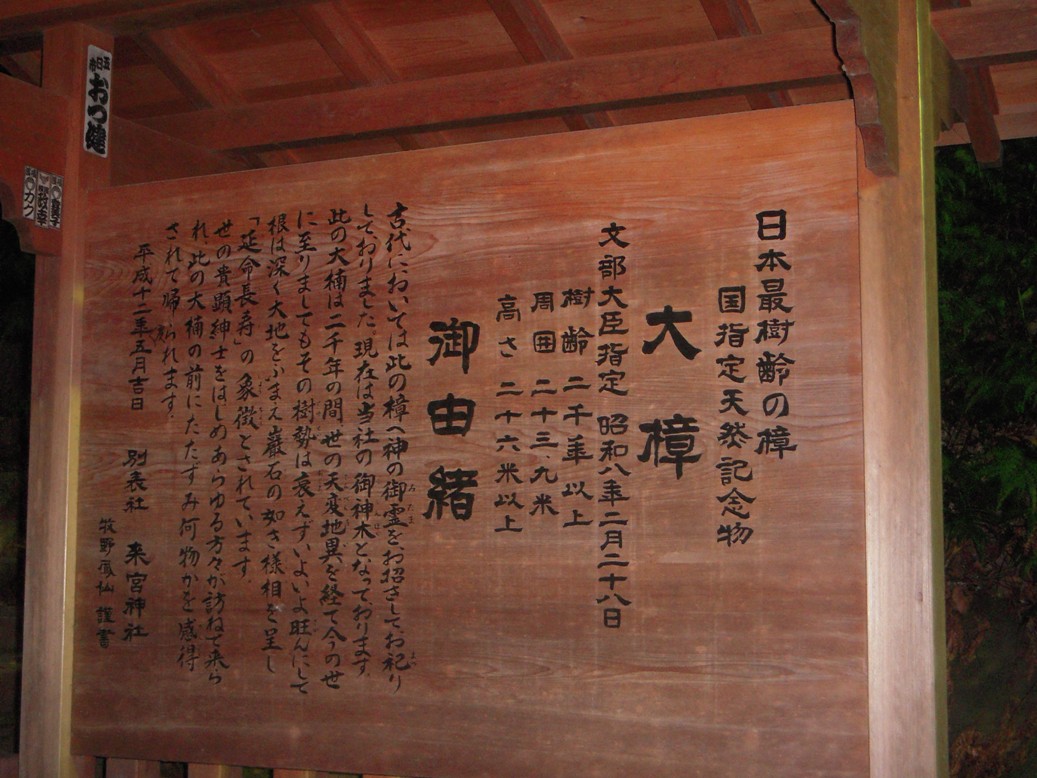 日本最樹齢の樟
国指定天然記念物
大樟
文部大臣指定 昭和八年二月二十八日
樹齢 二千年以上
周囲 二十三、九米
高さ 二十六米以上
御由緒
古代においては此の樟へ神の御霊をお招きしてお祀り
しておりました。現在は当社の御神木となっております。
此の大楠は二千年の間、世の天変地異を経て今の世
に至りましてもその樹勢は衰えずいよいよ旺んにして
根は深く大地をふまえ巌石の如き様相を呈し
「延命長寿」の象徴とされています。
世の貴顕紳士をはじめあらゆる方々が訪ねて来ら
れ、此の大楠の前にたたずみ何物かを感得
されて帰られます。
平成十二年五月吉日
別表社 来宮神社
牧野 仙 謹書
五日市
おつ健
カク